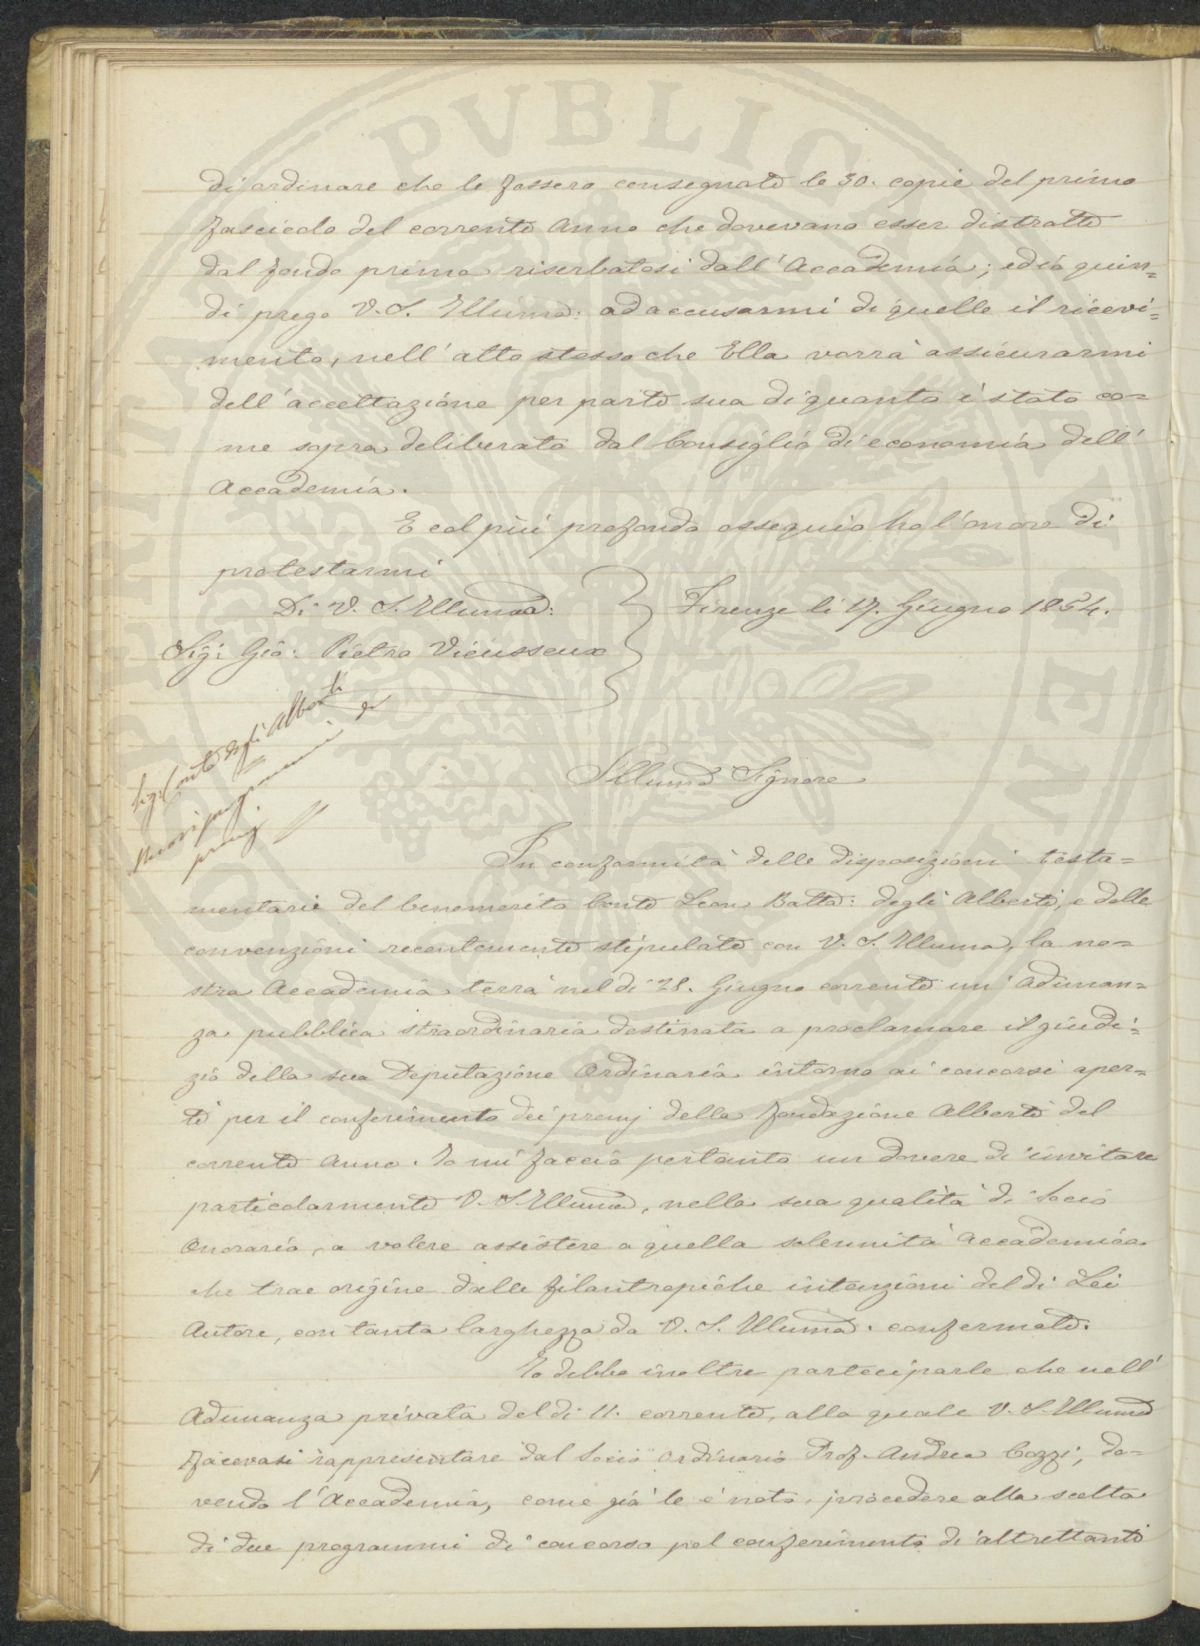 di ordinare che le fossero consegnate le 50. copie del primo
fascicolo del corrente Anno che dovevano esser distratte
dal fondo prima riserbatosi dall'Accademia; ed io quin=
di prego V. S. Illuma: ad accusarmi di quelle il ricevi=
mento, nell'atto stesso che Ella vorrà assicurarmi
dell'accettazione per parte sua di quanto è stato co=
me sopra deliberato dal Consiglio di economia dell'
Accademia.
E col più profondo ossequio ho l'onore di
protestarmi
Di V. S. Illuma:
Firenze li 17. Giugno 1854.
Sig: Gio: Pietro Vieusseux
Sig: Conte degli Alberti
Nuovi programmi di
premj
Illumo Signore
In conformità delle disposizioni testa=
mentarie del benemerito Conte Leon Batta: degli Alberti, e delle
convenzioni recentemente stipulate con V. S. Illuma, la no=
stra Accademia terrà nel dì 28. Giugno corrente un'Adunan=
za pubblica straordinaria destinata a proclamare il giudi=
zio della sua Deputazione Ordinaria intorno ai concorsi aper=
ti per il conferimento dei premj della fondazione Alberti del
corrente Anno. Io mi faccio pertanto un dovere di invitare
particolarmente V. S. Illuma, nella sua qualità di Socio
Onorario, a volere assistere a quella solennità Accademica
che trae origine dalle filantropiche intenzioni del di Lei
Autore, con tanta larghezza da V. S. Illuma. confermate.
Io debbo inoltre parteciparle che nell'
Adunanza privata del dì 11. corrente, alla quale V. S. Illuma
facevasi rappresentare dal Socio Ordinario Prof. Andrea Cozzi, do=
vendo l'Accademia, come già le è noto, procedere alla scelta
di due programmi di concorso pel conferimento di altrettanti